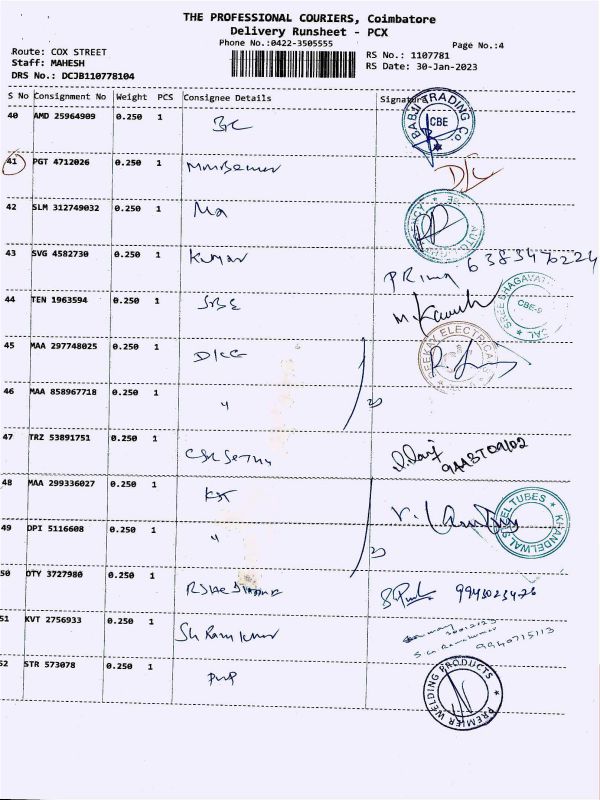 THE PROFESSIONAL COURIERS, Coimbatore
Delivery Runsheet - PCX
Phone No.:0422-3505555
Page No.:4
Route: COX STREET
Staff: MAHESH
DRS No.: DCJB110778104
RS No.: 1107781
RS Date: 30-Jan-2023
S No Consignment No Weight PCS Consignee Details Signature
40 AMD 25964909 0.250 1 BABJI TRADING Co. CBE
41 PGT 4712026 0.250 1 D/C
42 SLM 312749032 0.250 1 Ma
43 SVG 4582730 0.250 1 Kumar PRima 6383470224
44 TEN 1963594 0.250 1 SBE CBE-9
45 MAA 297748025 0.250 1 DKG
46 MAA 858967718 0.250 1 "
47 TRZ 53891751 0.250 1
48 MAA 299336027 0.250 1 KST KHANDELWAL STEEL TUBES
49 DPI 5116608 0.250 1 "
50 OTY 3727980 0.250 1
51 KVT 2756933 0.250 1 Sh Ram kumar 9940715113
52 STR 573078 0.250 1 PWP PREMIER WELDING PRODUCTS